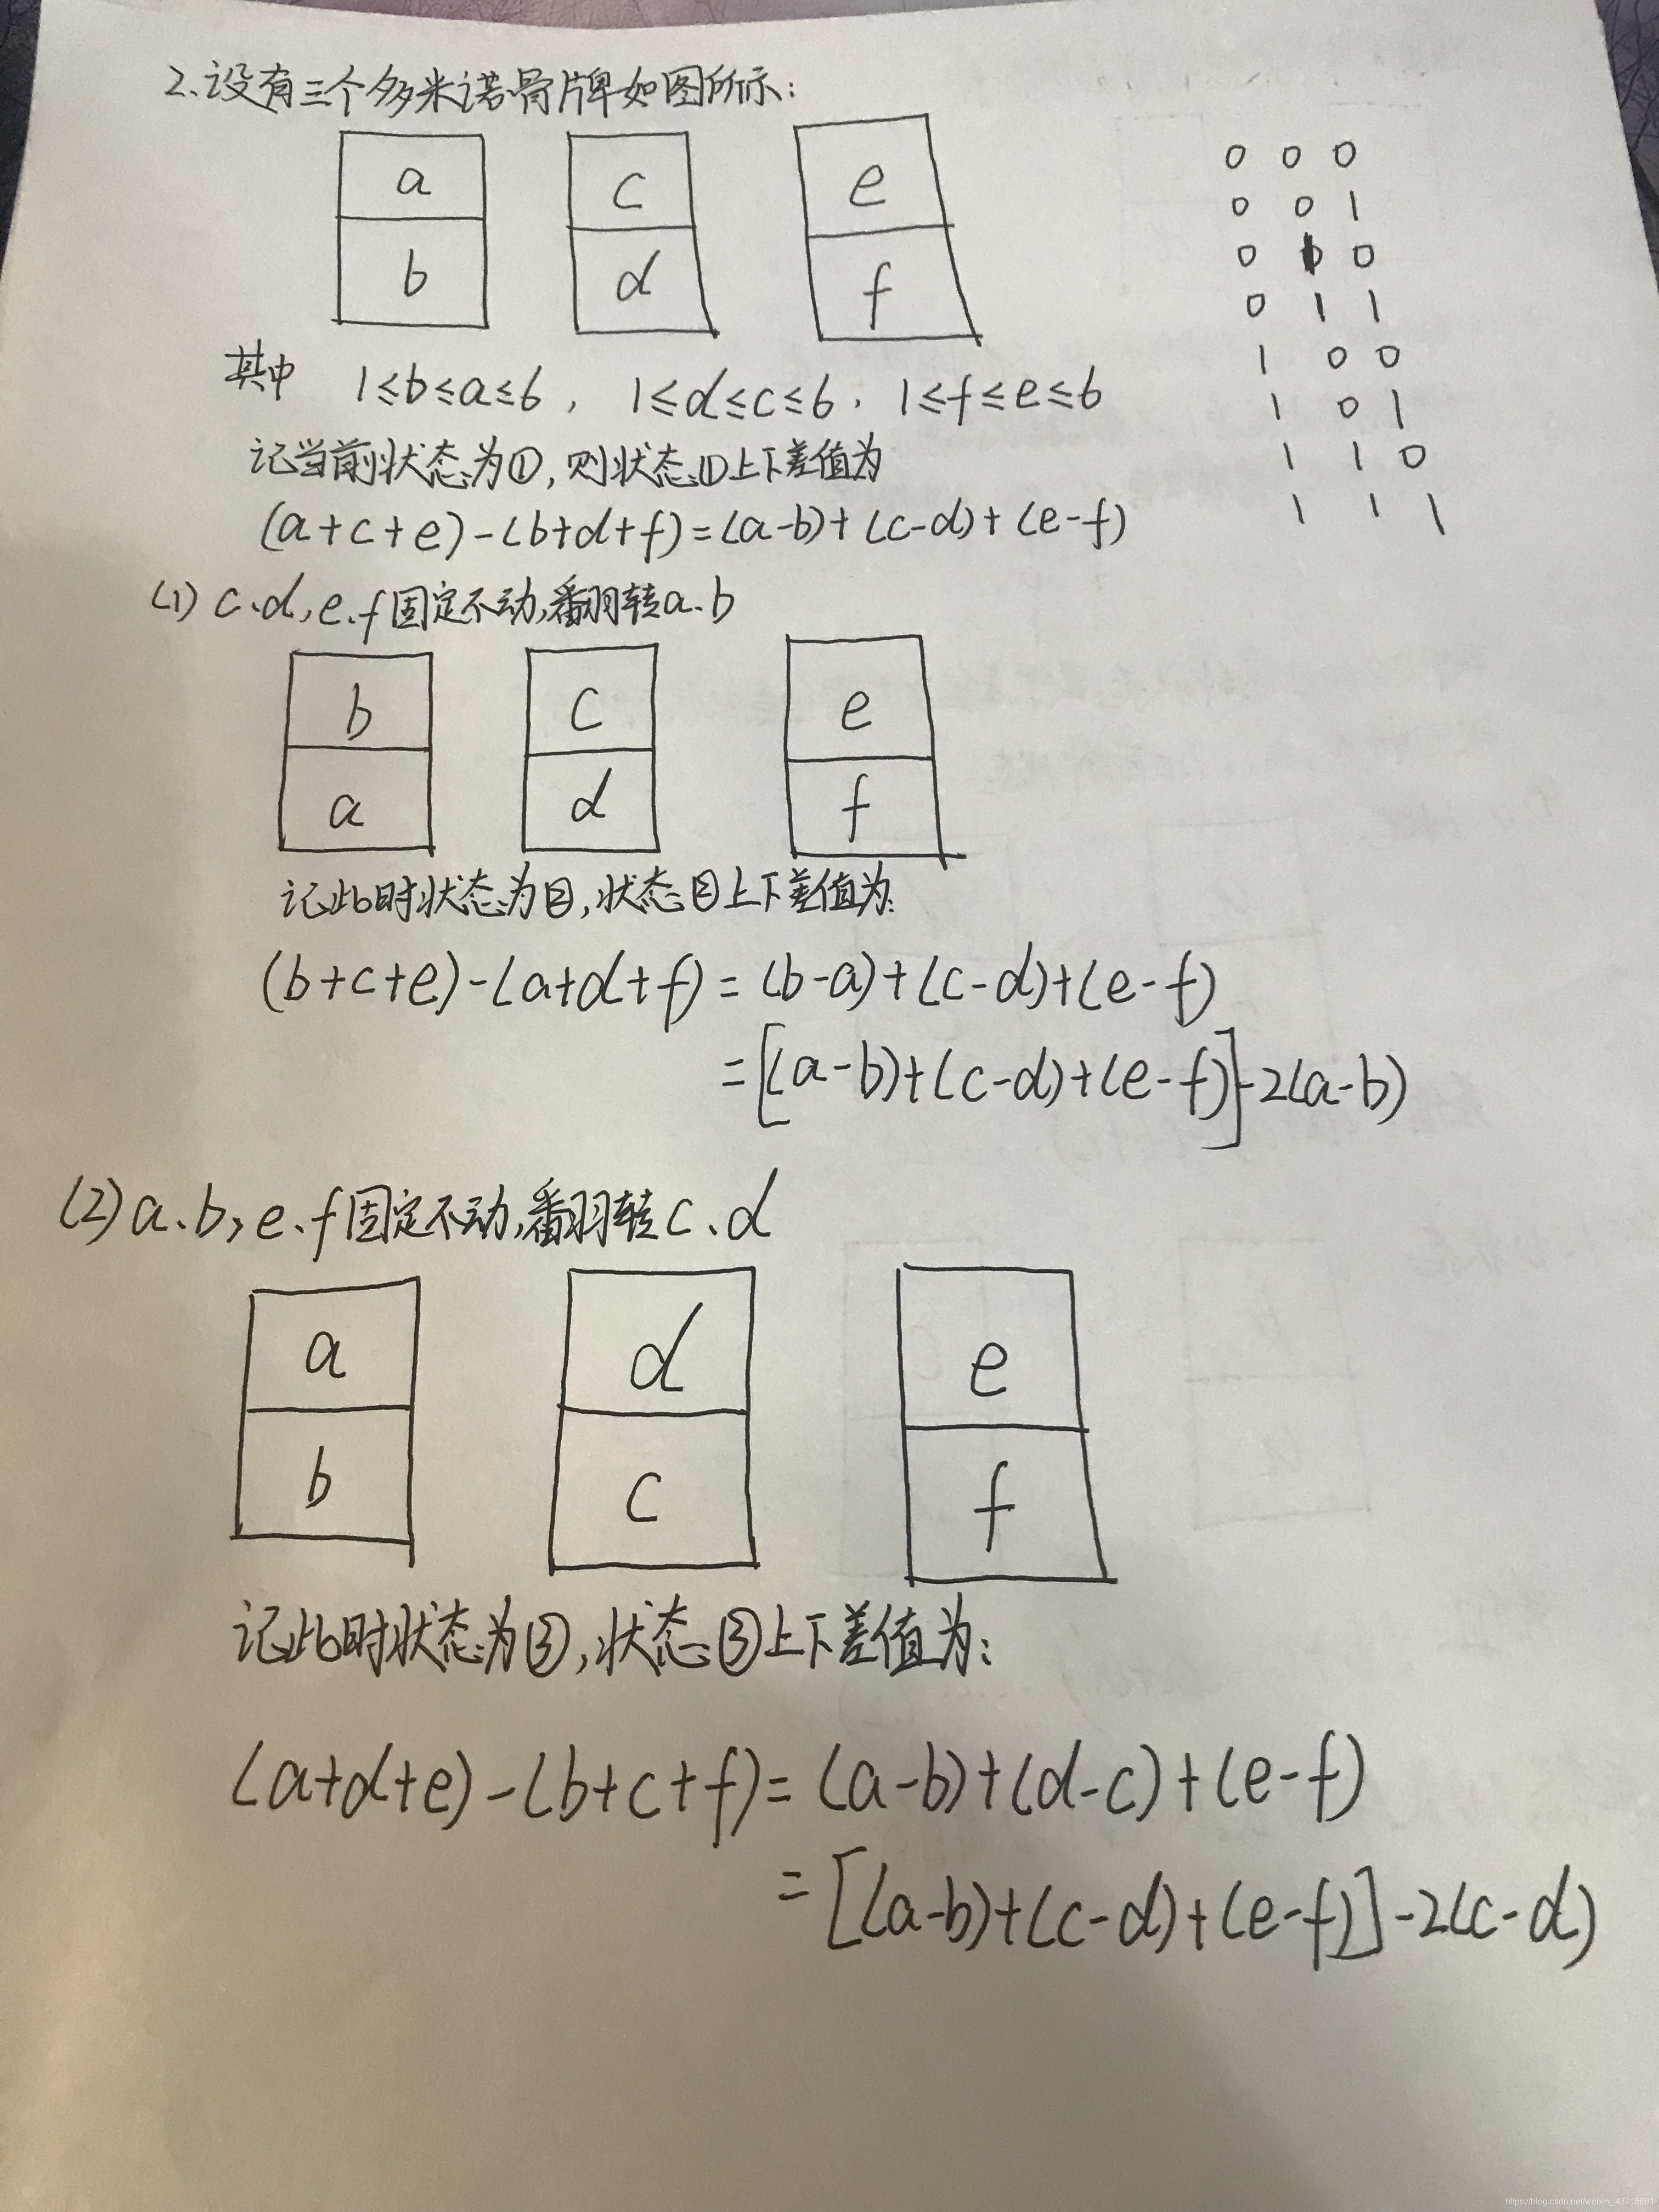 2.设有三个多米诺骨牌如图所示:
a c e
b d f
0 0 0
0 0 1
0 1 0
0 1 1
1 0 0
1 0 1
1 1 0
1 1 1
其中 1≤b≤a≤6, 1≤d≤c≤6, 1≤f≤e≤6
记当前状态为①,则状态①上下差值为
(a+c+e)-(b+d+f)=(a-b)+(c-d)+(e-f)
(1) c、d,e、f固定不动,翻转a、b
b c e
a d f
记此时状态为②,状态②上下差值为:
(b+c+e)-(a+d+f)=(b-a)+(c-d)+(e-f)
=[(a-b)+(c-d)+(e-f)]-2(a-b)
(2) a、b,e、f固定不动,翻转c、d
a d e
b c f
记此时状态为③,状态③上下差值为:
(a+d+e)-(b+c+f)=(a-b)+(d-c)+(e-f)
=[(a-b)+(c-d)+(e-f)]-2(c-d)
https://blog.csdn.net/weixin_43715601